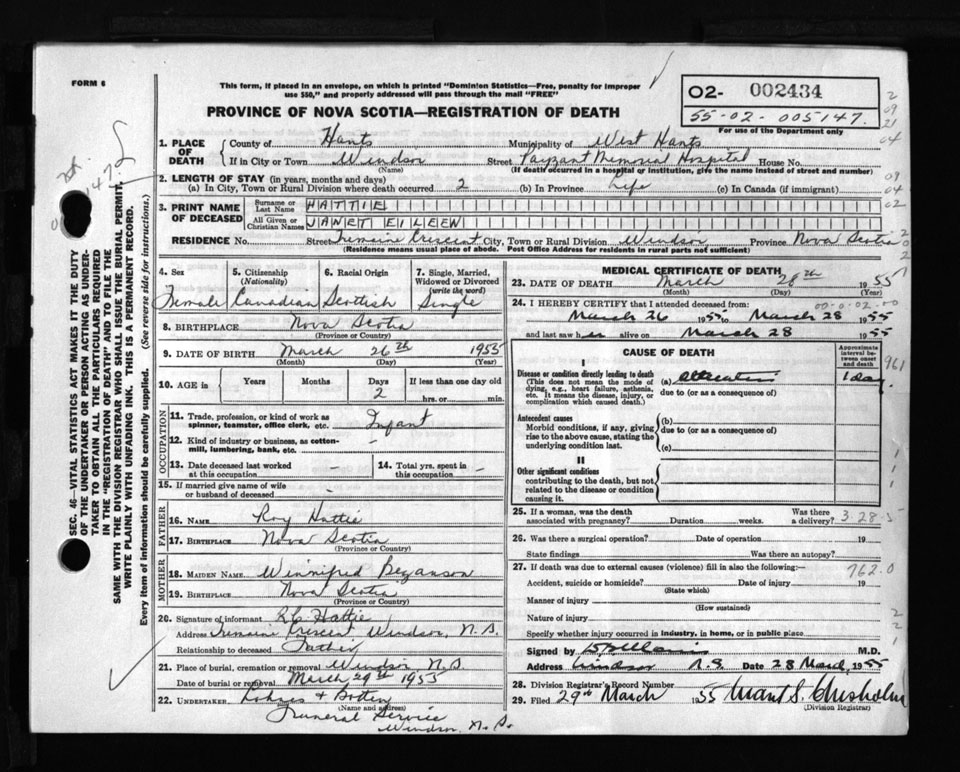 FORM 6
This form, if placed in an envelope, on which is printed "Dominion Statistics—Free, penalty for improper
use $50," and properly addressed will pass through the mail "FREE"
PROVINCE OF NOVA SCOTIA—REGISTRATION OF DEATH
O2- 002434
55-02-005147.
For use of the Department only
1. PLACE OF DEATH
County of Hants Municipality of West Hants
If in City or Town Windsor Street Payzant Memorial Hospital House No.
(Name) (If death occurred in a hospital or institution, give the name instead of street and number)
2. LENGTH OF STAY (in years, months and days)
(a) In City, Town or Rural Division where death occurred 2 (b) In Province Life (c) In Canada (if immigrant)
3. PRINT NAME OF DECEASED
Surname or Last Name HATTIE
All Given or Christian Names JANET EILEEN
RESIDENCE No. Street Tremaine Crescent City, Town or Rural Division Windsor Province Nova Scotia
(Residence means usual place of abode. Post Office Address for residents in rural parts not sufficient)
4. Sex Female
5. Citizenship (Nationality) Canadian
6. Racial Origin Scottish
7. Single, Married, Widowed or Divorced (write the word) Single
8. BIRTHPLACE Nova Scotia
(Province or Country)
9. DATE OF BIRTH March 26th 1955
(Month) (Day) (Year)
10. AGE in Years Months Days 2 If less than one day old
hrs. or min.
OCCUPATION
11. Trade, profession, or kind of work as
spinner, teamster, office clerk, etc. Infant
12. Kind of industry or business, as cotton-
mill, lumbering, bank, etc. -
13. Date deceased last worked
at this occupation -
14. Total yrs. spent in
this occupation -
15. If married give name of wife
or husband of deceased -
FATHER
16. NAME Roy Hattie
17. BIRTHPLACE Nova Scotia
(Province or Country)
MOTHER
18. MAIDEN NAME Winnifred Bezanson
19. BIRTHPLACE Nova Scotia
(Province or Country)
20. Signature of informant R.C. Hattie
Address Tremaine Crescent Windsor, N.S.
Relationship to deceased Father
21. Place of burial, cremation or removal Windsor N.S.
Date of burial or removal March 29th 1955
22. UNDERTAKER
(Name and address)
Funeral Service
Windsor, N.S.
MEDICAL CERTIFICATE OF DEATH
23. DATE OF DEATH March 28th 1955
(Month) (Day) (Year)
24. I HEREBY CERTIFY that I attended deceased from:
March 26 1955 to March 28 1955
and last saw her alive on March 28 1955
CAUSE OF DEATH
Approximate interval between onset and death
I
Disease or condition directly leading to death
(This does not mean the mode of dying, e.g., heart failure, asthenia, etc. It means the disease, injury, or complication which caused death.)
(a) Atelectasis 1 day
due to (or as a consequence of)
Antecedent causes
Morbid conditions, if any, giving rise to the above cause, stating the underlying condition last.
(b)
due to (or as a consequence of)
(c)
II
Other significant conditions
contributing to the death, but not related to the disease or condition causing it.
25. If a woman, was the death
associated with pregnancy? Duration weeks. Was there a delivery? 3-28-5
26. Was there a surgical operation? Date of operation 19
State findings Was there an autopsy?
27. If death was due to external causes (violence) fill in also the following:— 762.0
Accident, suicide or homicide? Date of injury 19
(State which)
Manner of injury
(How sustained)
Nature of injury
Specify whether injury occurred in industry, in home, or in public place
Signed by M.D.
Address Windsor N.S. Date 28 March, 1955
28. Division Registrar's Record Number
29. Filed 29th March 1955 Chisholm
(Division Registrar)
SEC. 46—VITAL STATISTICS ACT MAKES IT THE DUTY
OF THE UNDERTAKER OR PERSON ACTING AS UNDER-
TAKER TO OBTAIN ALL THE PARTICULARS REQUIRED
IN THE "REGISTRATION OF DEATH" AND TO FILE THE
SAME WITH THE DIVISION REGISTRAR WHO SHALL ISSUE THE BURIAL PERMIT.
WRITE PLAINLY WITH UNFADING INK. THIS IS A PERMANENT RECORD.
Every item of information should be carefully supplied. (See reverse side for instructions.)